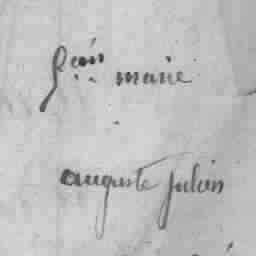 marie
auguste Julien